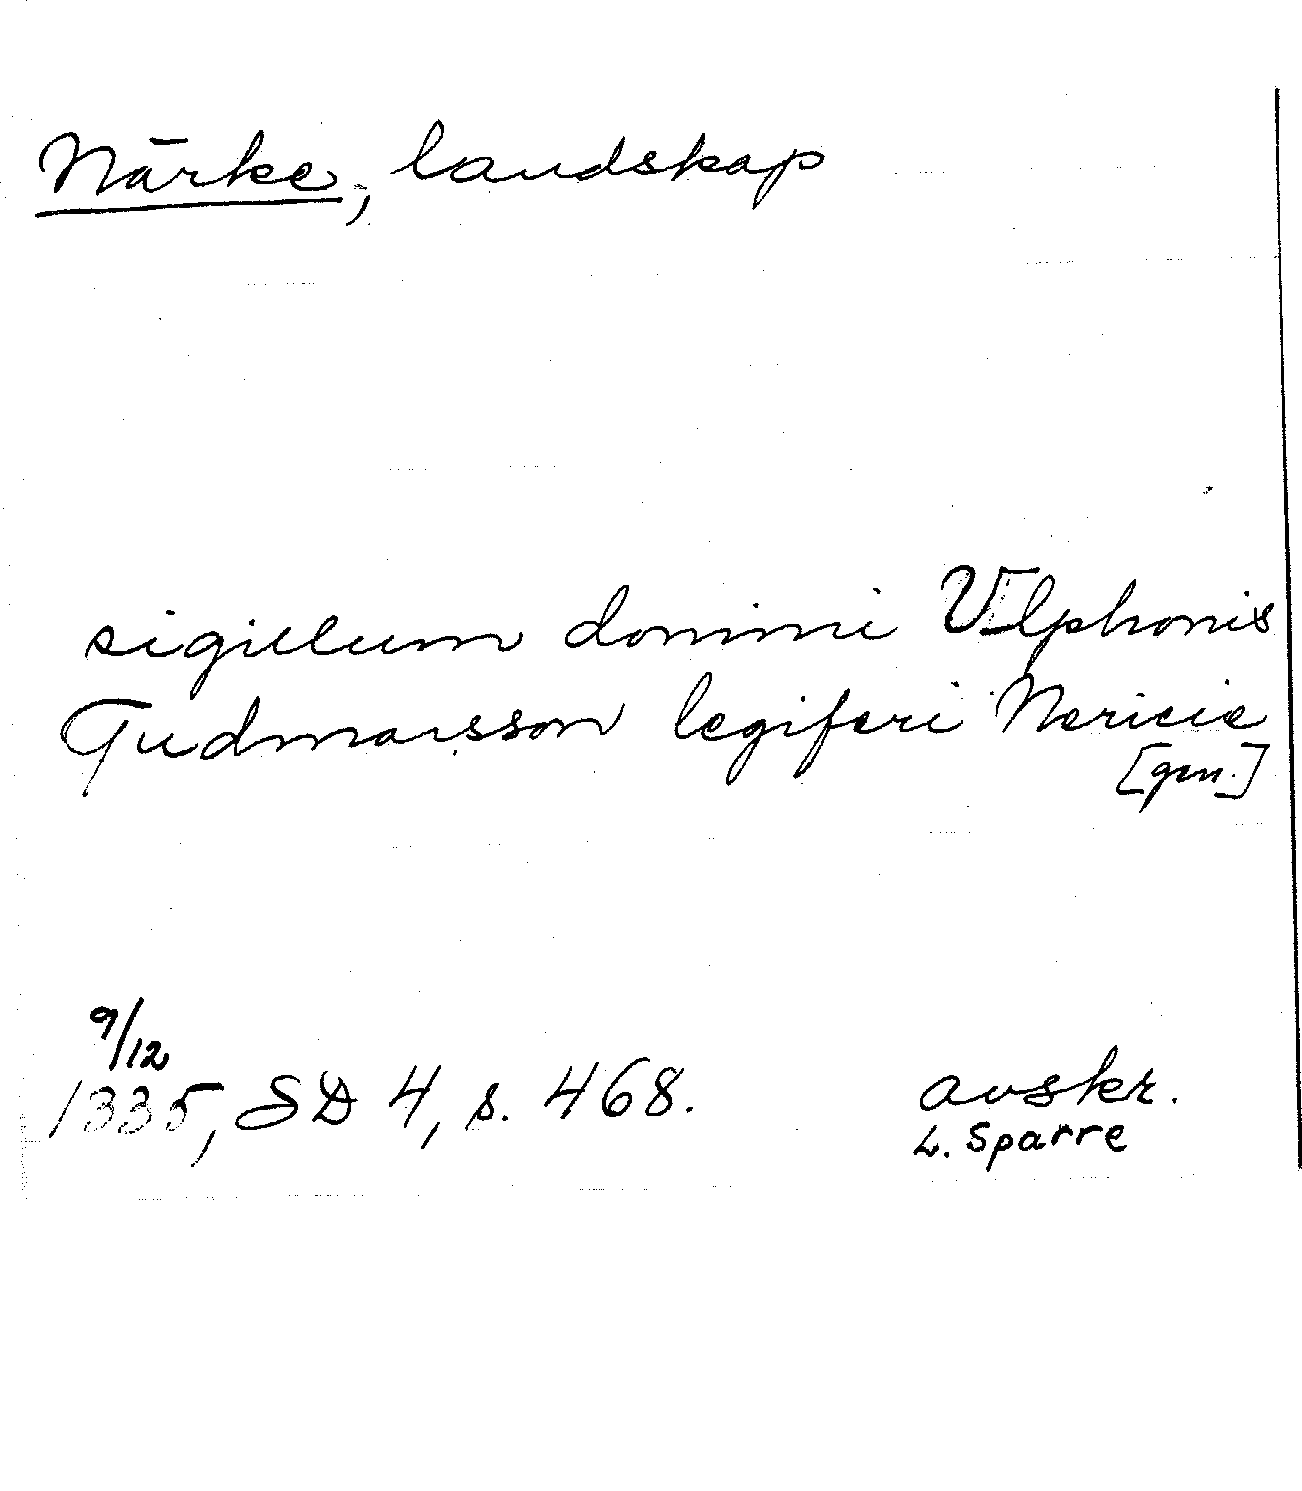 Närke, landskap
sigillum domini Vlphonis
Gudmarsson legiferi Nericie
[gen.]
9/12
1335, SD 4, s. 468.
avskr.
L. Sparre